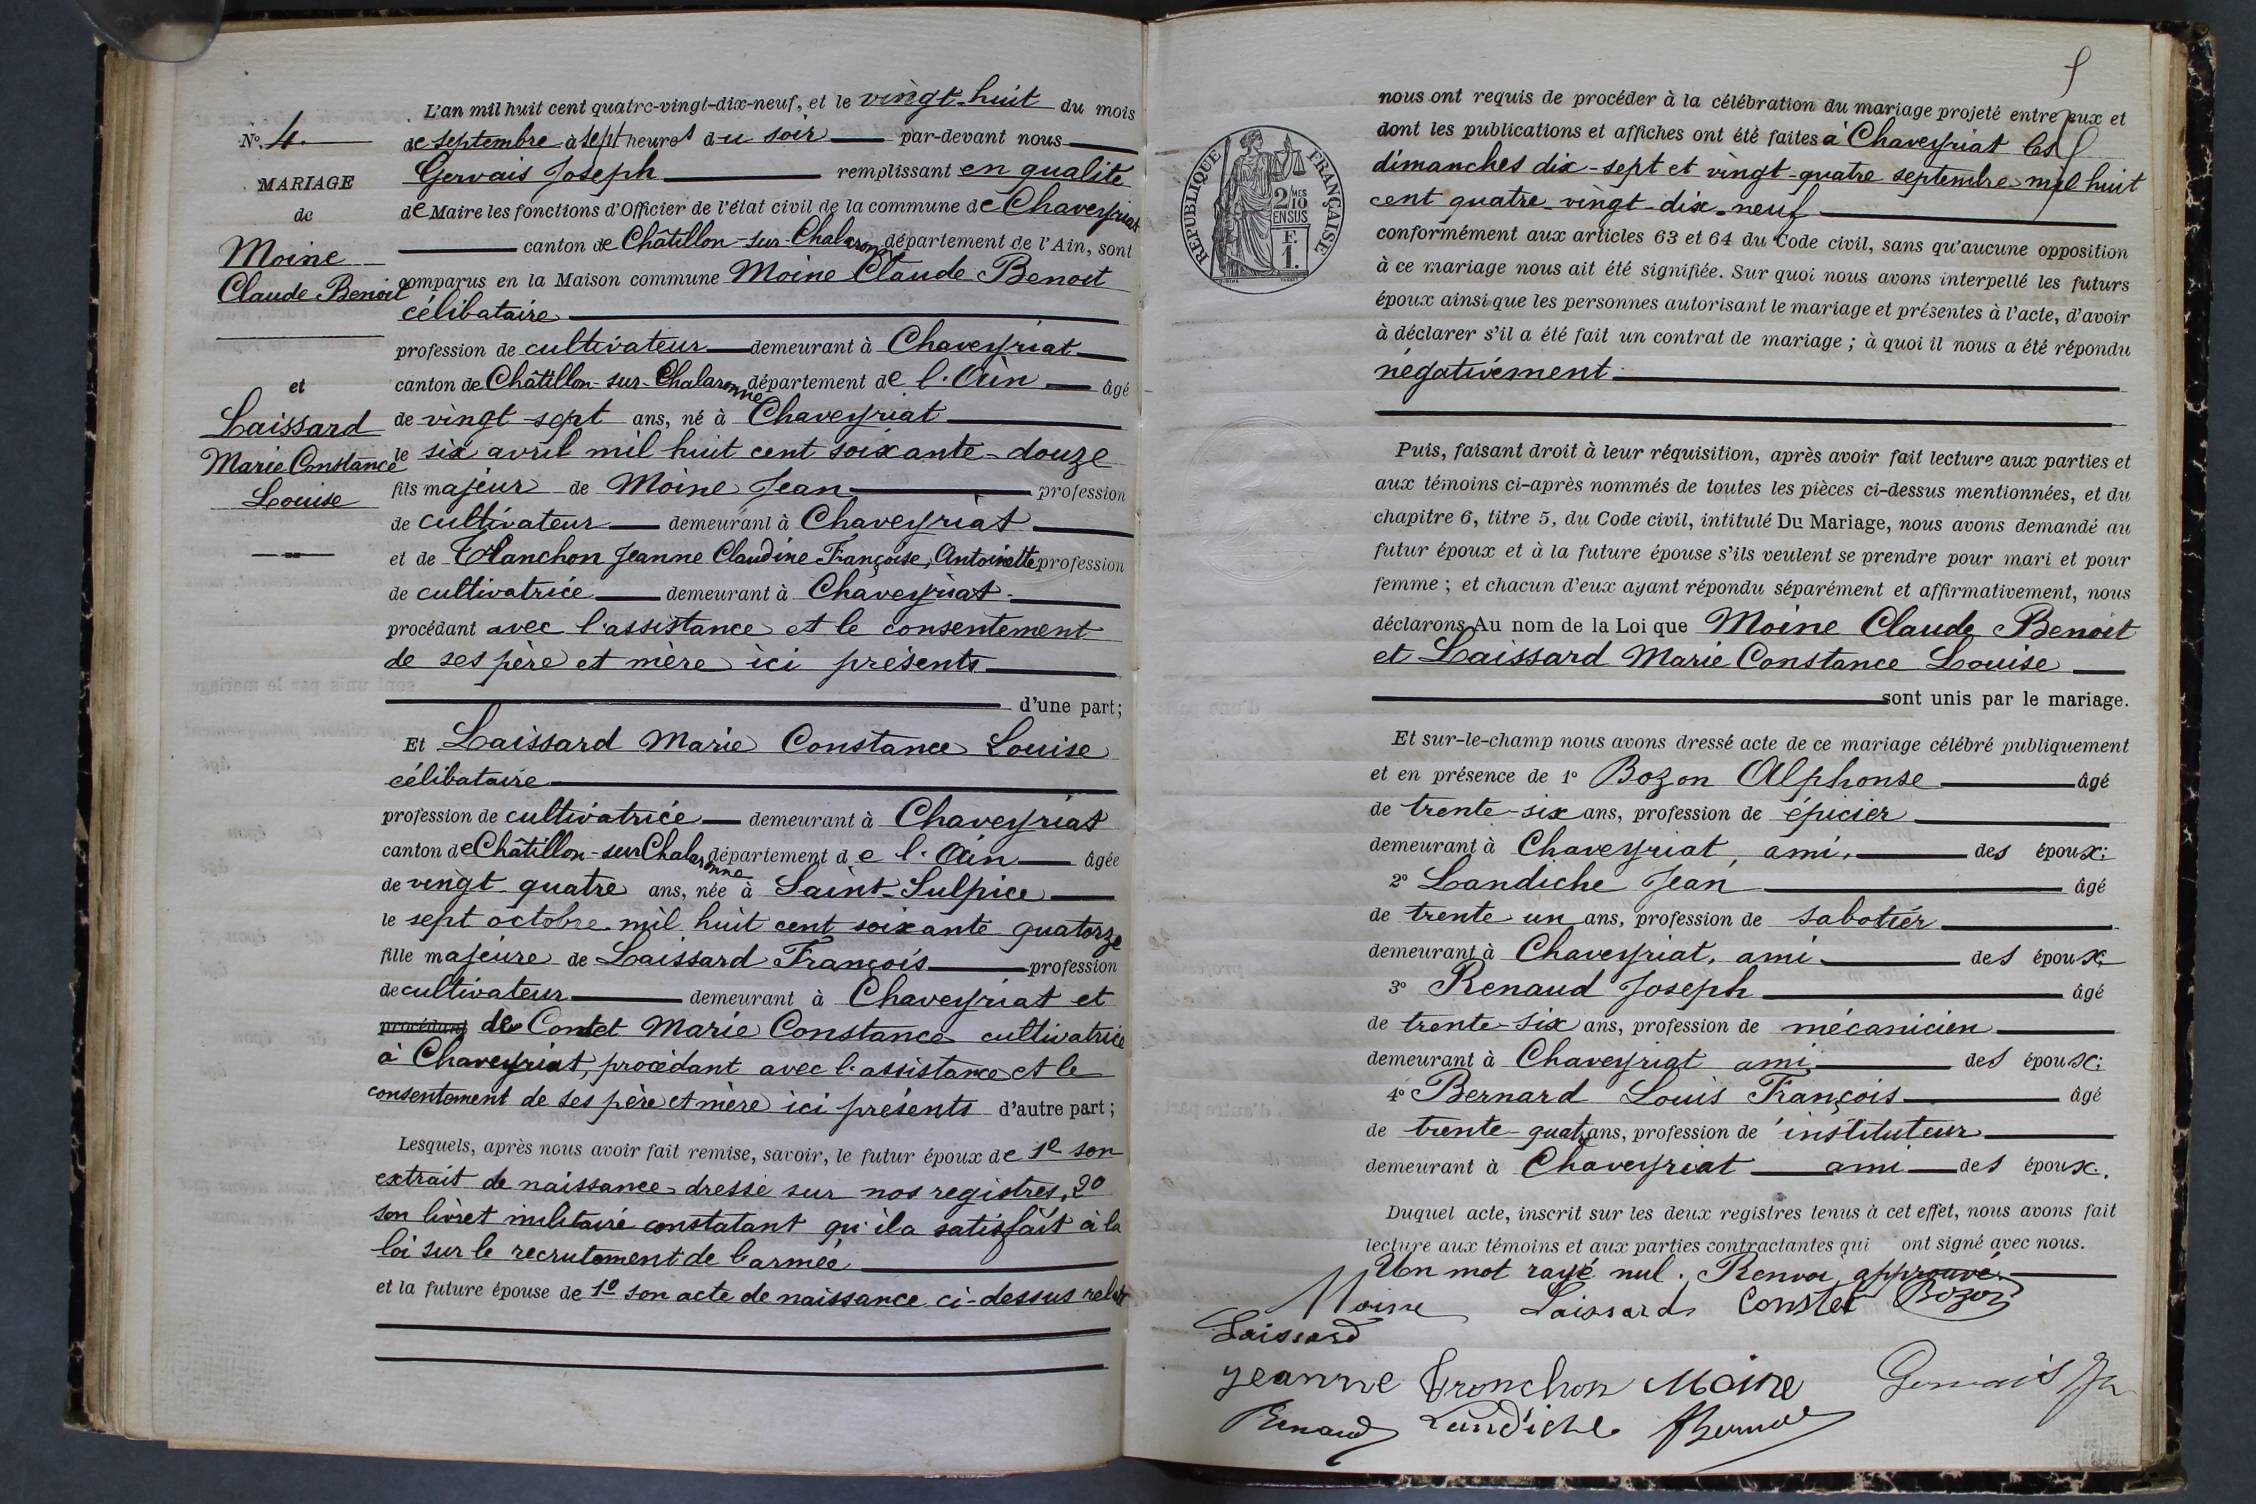 L'an mil huit cent quatre-vingt-dix-neuf, et le vingt-huit du mois
N° 4
de septembre à sept heures du soir par-devant nous
Gervais Joseph remplissant en qualité
MARIAGE
de Maire les fonctions d'Officier de l'état civil de la commune de Chaveyriat
de
canton de Châtillon-sur-Chalaronne département de l'Ain, sont
Moine
comparus en la Maison commune Moine Claude Benoit
Claude Benoit
célibataire
profession de cultivateur demeurant à Chaveyriat
et
canton de Châtillon-sur-Chalaronne département de l'Ain âgé
Laissard
de vingt-sept ans, né à Chaveyriat
Marie Constance
le six avril mil huit cent soixante-douze
Louise
fils majeur de Moine Jean profession
de cultivateur demeurant à Chaveyriat
et de Jeanne Claudine Françoise, Antoinette profession
de cultivatrice demeurant à Chaveyriat
procédant avec l'assistance et le consentement
de ses père et mère ici présents
d'une part;
Et Laissard Marie Constance Louise
célibataire
profession de cultivatrice demeurant à Chaveyriat
canton de Châtillon-sur-Chalaronne département de l'Ain âgée
de vingt-quatre ans, née à Saint-Sulpice
le sept octobre mil huit cent soixante quatorze
fille majeure de Laissard François profession
de cultivateur demeurant à Chaveyriat et
procédant de Contet Marie Constance cultivatrice
à Chaveyriat, procédant avec l'assistance et le
consentement de ses père et mère ici présents d'autre part;
Lesquels, après nous avoir fait remise, savoir, le futur époux de 1° son
extrait de naissance dressé sur nos registres, 2°
son livret militaire constatant qu'il a satisfait à la
loi sur le recrutement de l'armée
et la future épouse de 1° son acte de naissance ci-dessus relaté
5
RÉPUBLIQUE FRANÇAISE
2/10
MES
EN SUS
F.
1.
nous ont requis de procéder à la célébration du mariage projeté entre eux et
dont les publications et affiches ont été faites à Chaveyriat les
dimanches dix-sept et vingt-quatre septembre mil huit
cent quatre-vingt-dix-neuf
conformément aux articles 63 et 64 du Code civil, sans qu'aucune opposition
à ce mariage nous ait été signifiée. Sur quoi nous avons interpellé les futurs
époux ainsi que les personnes autorisant le mariage et présentes à l'acte, d'avoir
à déclarer s'il a été fait un contrat de mariage; à quoi il nous a été répondu
négativement
Puis, faisant droit à leur réquisition, après avoir fait lecture aux parties et
aux témoins ci-après nommés de toutes les pièces ci-dessus mentionnées, et du
chapitre 6, titre 5, du Code civil, intitulé Du Mariage, nous avons demandé au
futur époux et à la future épouse s'ils veulent se prendre pour mari et pour
femme; et chacun d'eux ayant répondu séparément et affirmativement, nous
déclarons Au nom de la Loi que Moine Claude Benoit
et Laissard Marie Constance Louise
sont unis par le mariage.
Et sur-le-champ nous avons dressé acte de ce mariage célébré publiquement
et en présence de 1° Bozon Alphonse âgé
de trente-six ans, profession de épicier
demeurant à Chaveyriat, ami, des époux;
2° Landiche Jean âgé
de trente un ans, profession de sabotier
demeurant à Chaveyriat, ami des époux;
3° Renaud Joseph âgé
de trente-six ans, profession de mécanicien
demeurant à Chaveyriat ami des époux;
4° Bernard Louis François âgé
de trente-quatre ans, profession de instituteur
demeurant à Chaveyriat ami des époux.
Duquel acte, inscrit sur les deux registres tenus à cet effet, nous avons fait
lecture aux témoins et aux parties contractantes qui ont signé avec nous.
Un mot rayé nul. Renvoi approuvé.
Moine Laissard Constet Bozon
Laissard
Jeanne Tronchon Moine Gervais Jh
Renaud Landiche Bernard